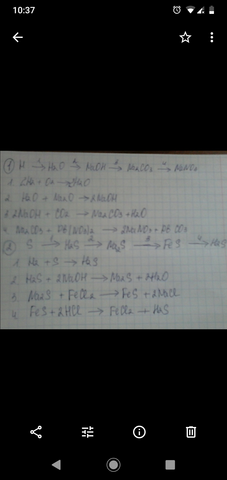 10:37
① H →¹ H₂O →² NaOH →³ Na₂CO₃ →⁴ NaNO₃
1. 2H₂ + O₂ → 2H₂O
2. H₂O + Na₂O → 2NaOH
3. 2NaOH + CO₂ → Na₂CO₃ + H₂O
4. Na₂CO₃ + Pb(NO₃)₂ → 2NaNO₃ + PbCO₃
② S →¹ H₂S →² Na₂S →³ FeS →⁴ H₂S
1. H₂ + S → H₂S
2. H₂S + 2NaOH → Na₂S + 2H₂O
3. Na₂S + FeCl₂ → FeS + 2NaCl
4. FeS + 2HCl → FeCl₂ + H₂S